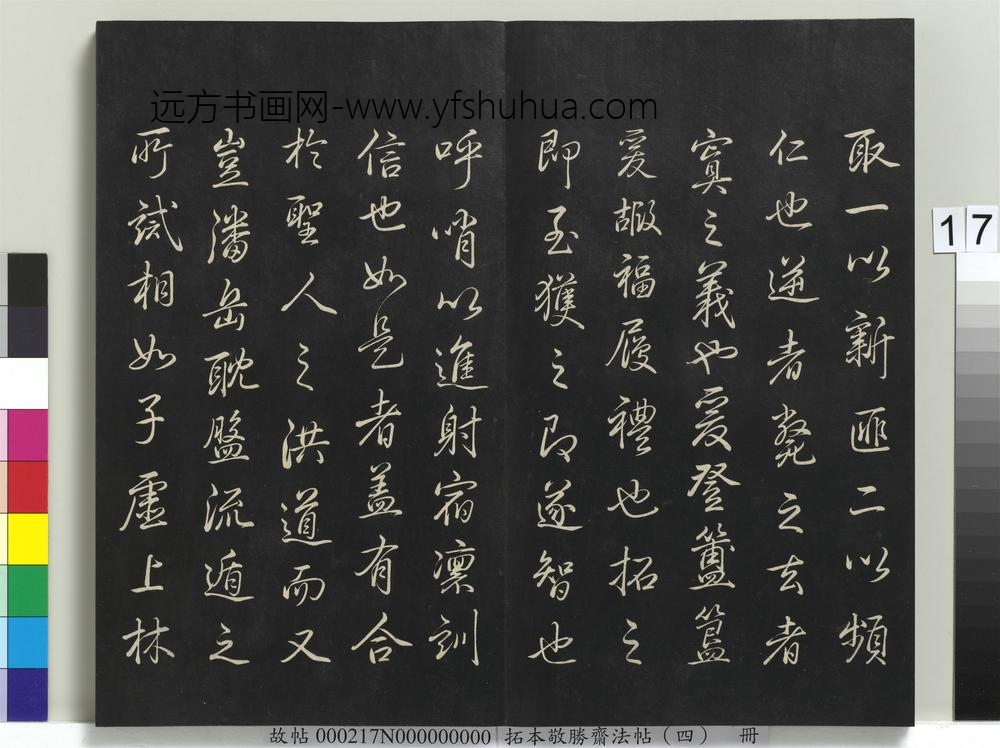 远方书画网-www.yfshuhua.com
取一以新匪二以頻
仁也逆者斃之去者
寘之義也爰登簠簋
爰嘏福履禮也拓之
即至獲之即遂智也
呼哨以進射宿凛訓
信也如是者盖有合
於聖人之洪道而又
豈潘岳耽盤流遁之
所試相如子虛上林
17
故帖 000217N000000000 拓本敬勝齋法帖（四） 冊